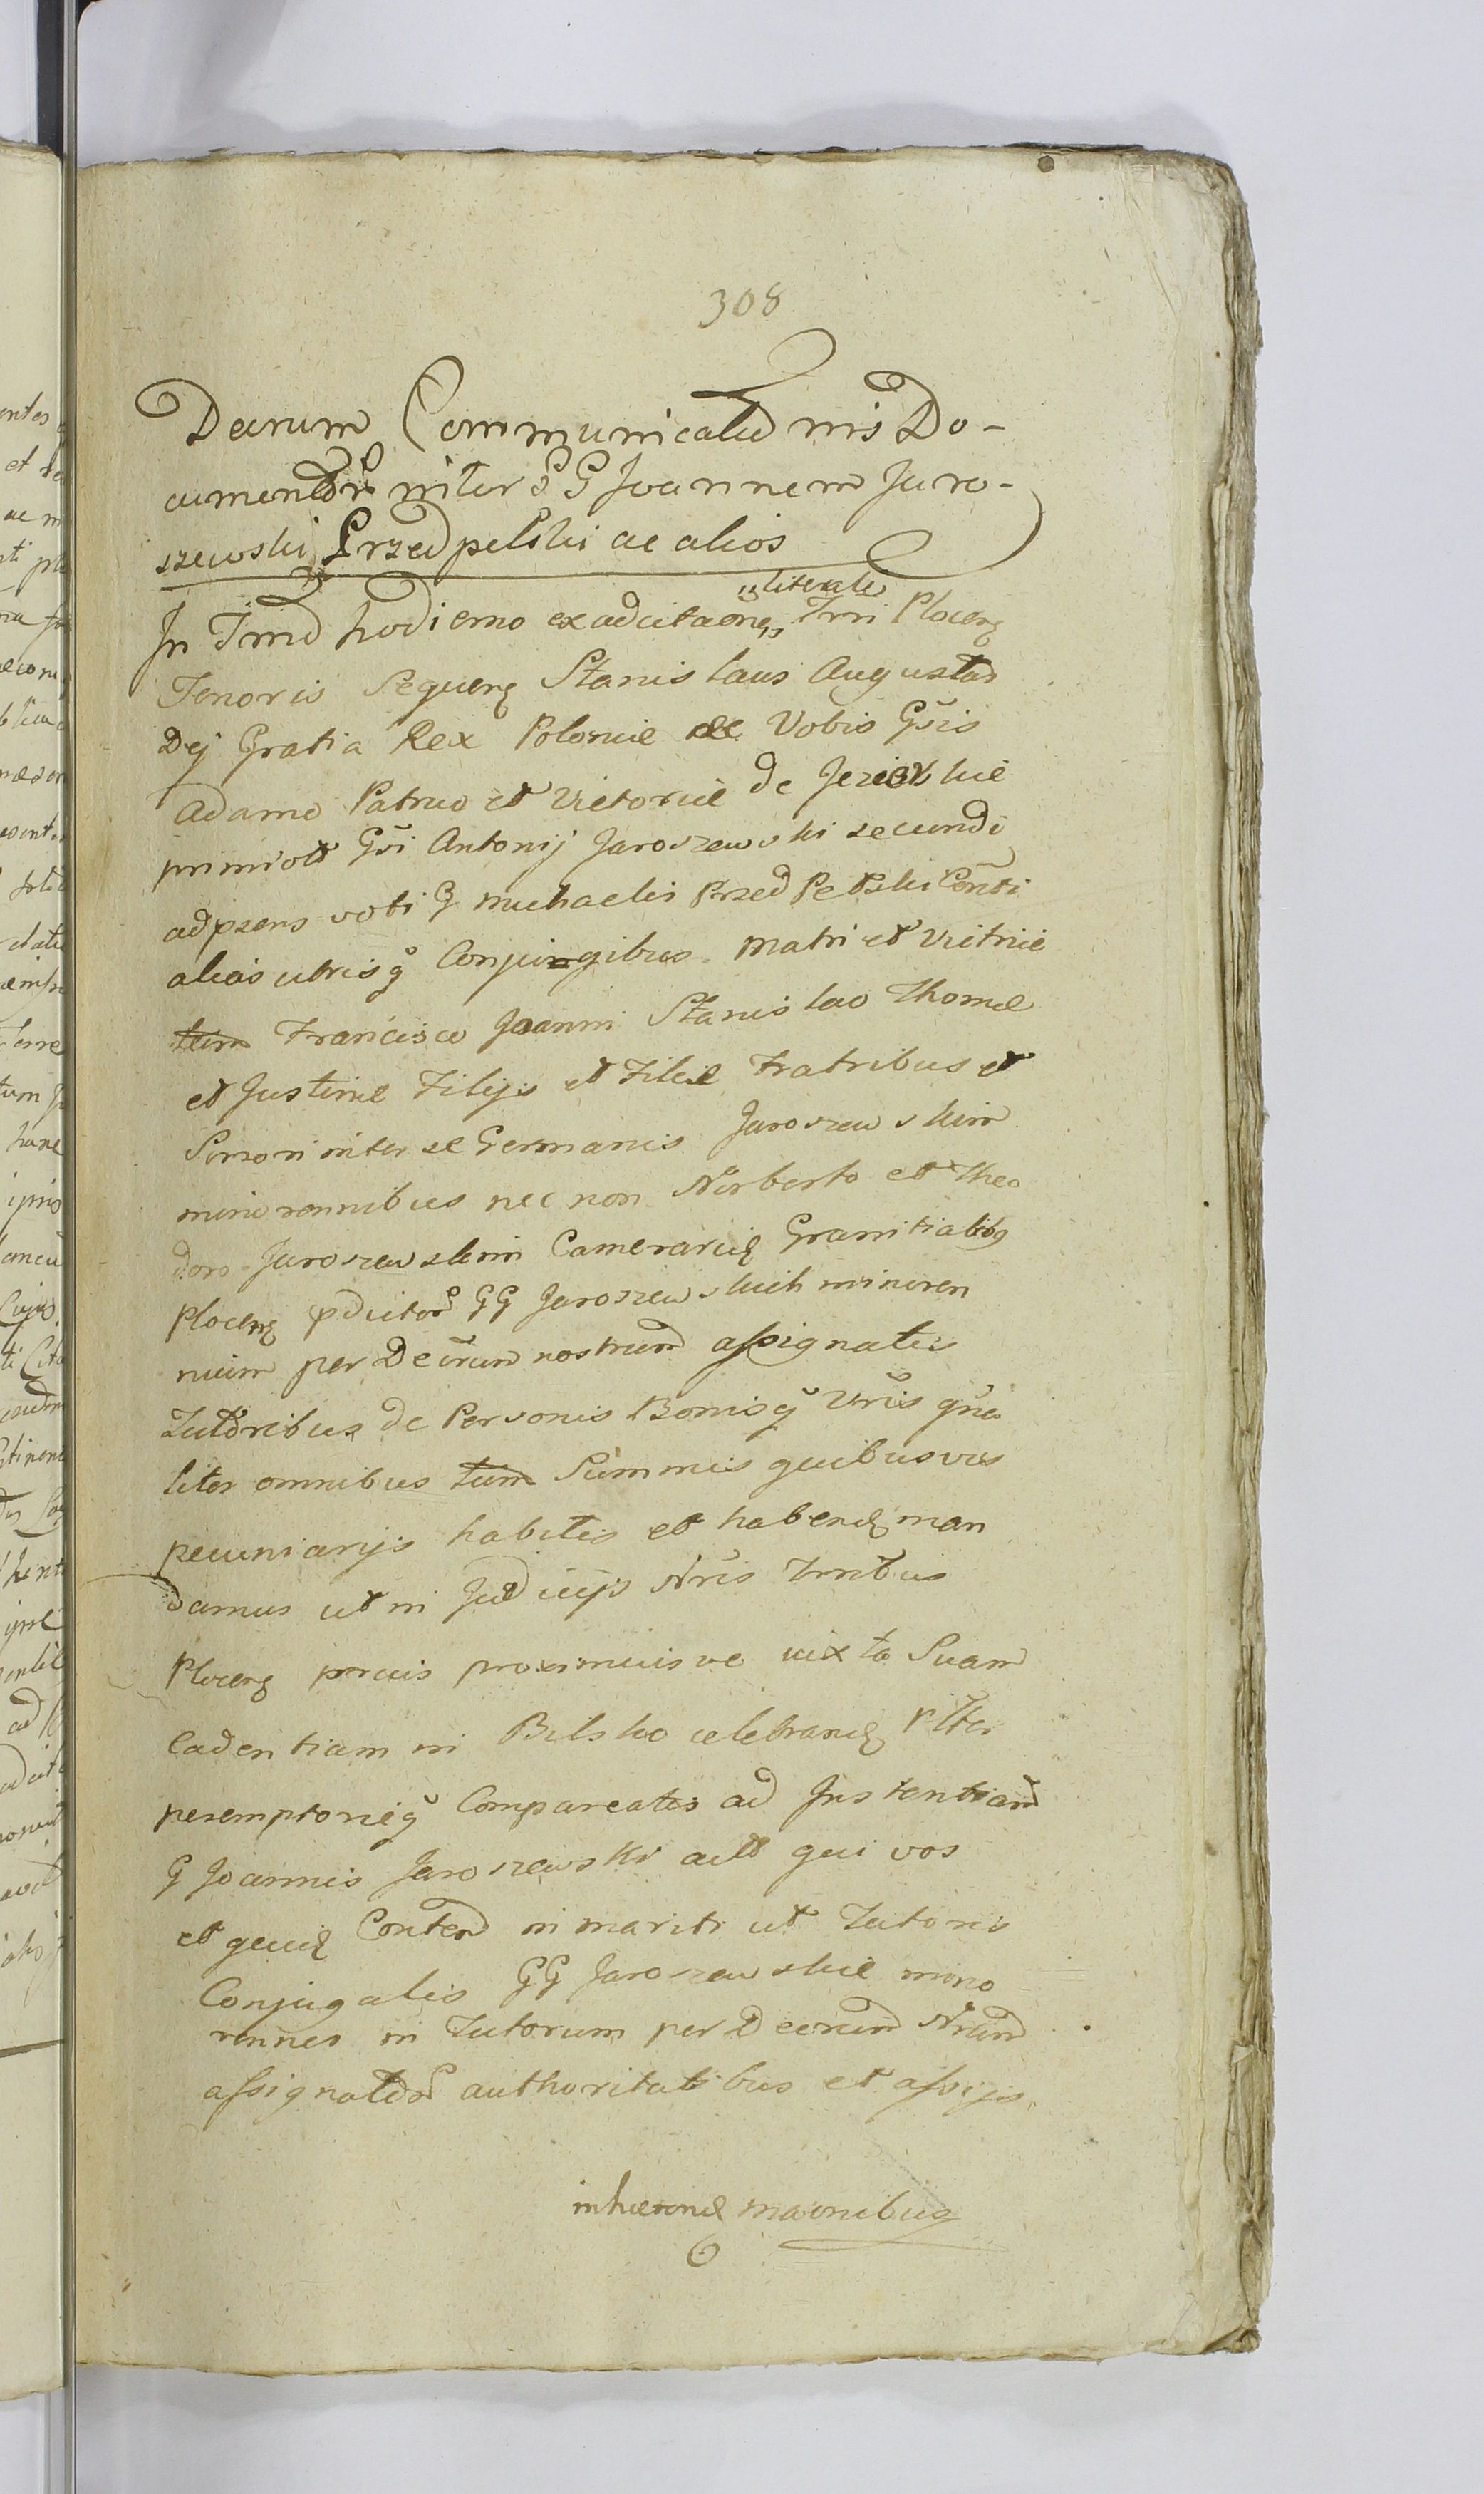 308
Decrum Communicatõnis Do-
cumentor inter GG Joannem Jaro-
szewski Przedpelski ac alios
literali
In Tmõ hodierno ex adcitaõne Trri Plocen
Tenoris Sequen Stanislaus Augustus
Dej Gratia Rex Poloniæ &c Vobis Gsis
Adamo Patruo et Victoriæ de Jezierskie
primi olt Gsi Antonij Jaroszewski secundi
ad pzens voti G Michaelis Przedpelski Conti
alias utrisq Conjungibus Matri et Vitrici
tum Francisco Joanni Stanislao Thomæ
et Justinæ Filijs et Filiæ Fratribus et
Sorori inter se Germanis Jaroszewskim
minorennibus nec non Norberto et Theo
doro Jaroszewskim Camerarijs Granitialibq
Plocen pdictor GG Jaroszewskich minoren
nium per Decrum nostrum assignatis
Tutoribus de Personis Bonisq Vris gna
liter omnibus tum Summis quibusvis
pecuniarijs habitis et habend man
damus ut in Judicijs Nris Trribus
Plocen prius proximiusve iuxta Suam
Cadentiam in Bilsko celebrand Pltr
peremptorieq Compareatis ad Instantiam
G Joannis Jaroszewski act qui vos
et quid Conten in mariti ut Tutoris
Conjugalis GG Jaroszewskie mino
rennes in Tutorum per Decrum Nrum
assignator authoritatibus et assijs
inhæren maonibus